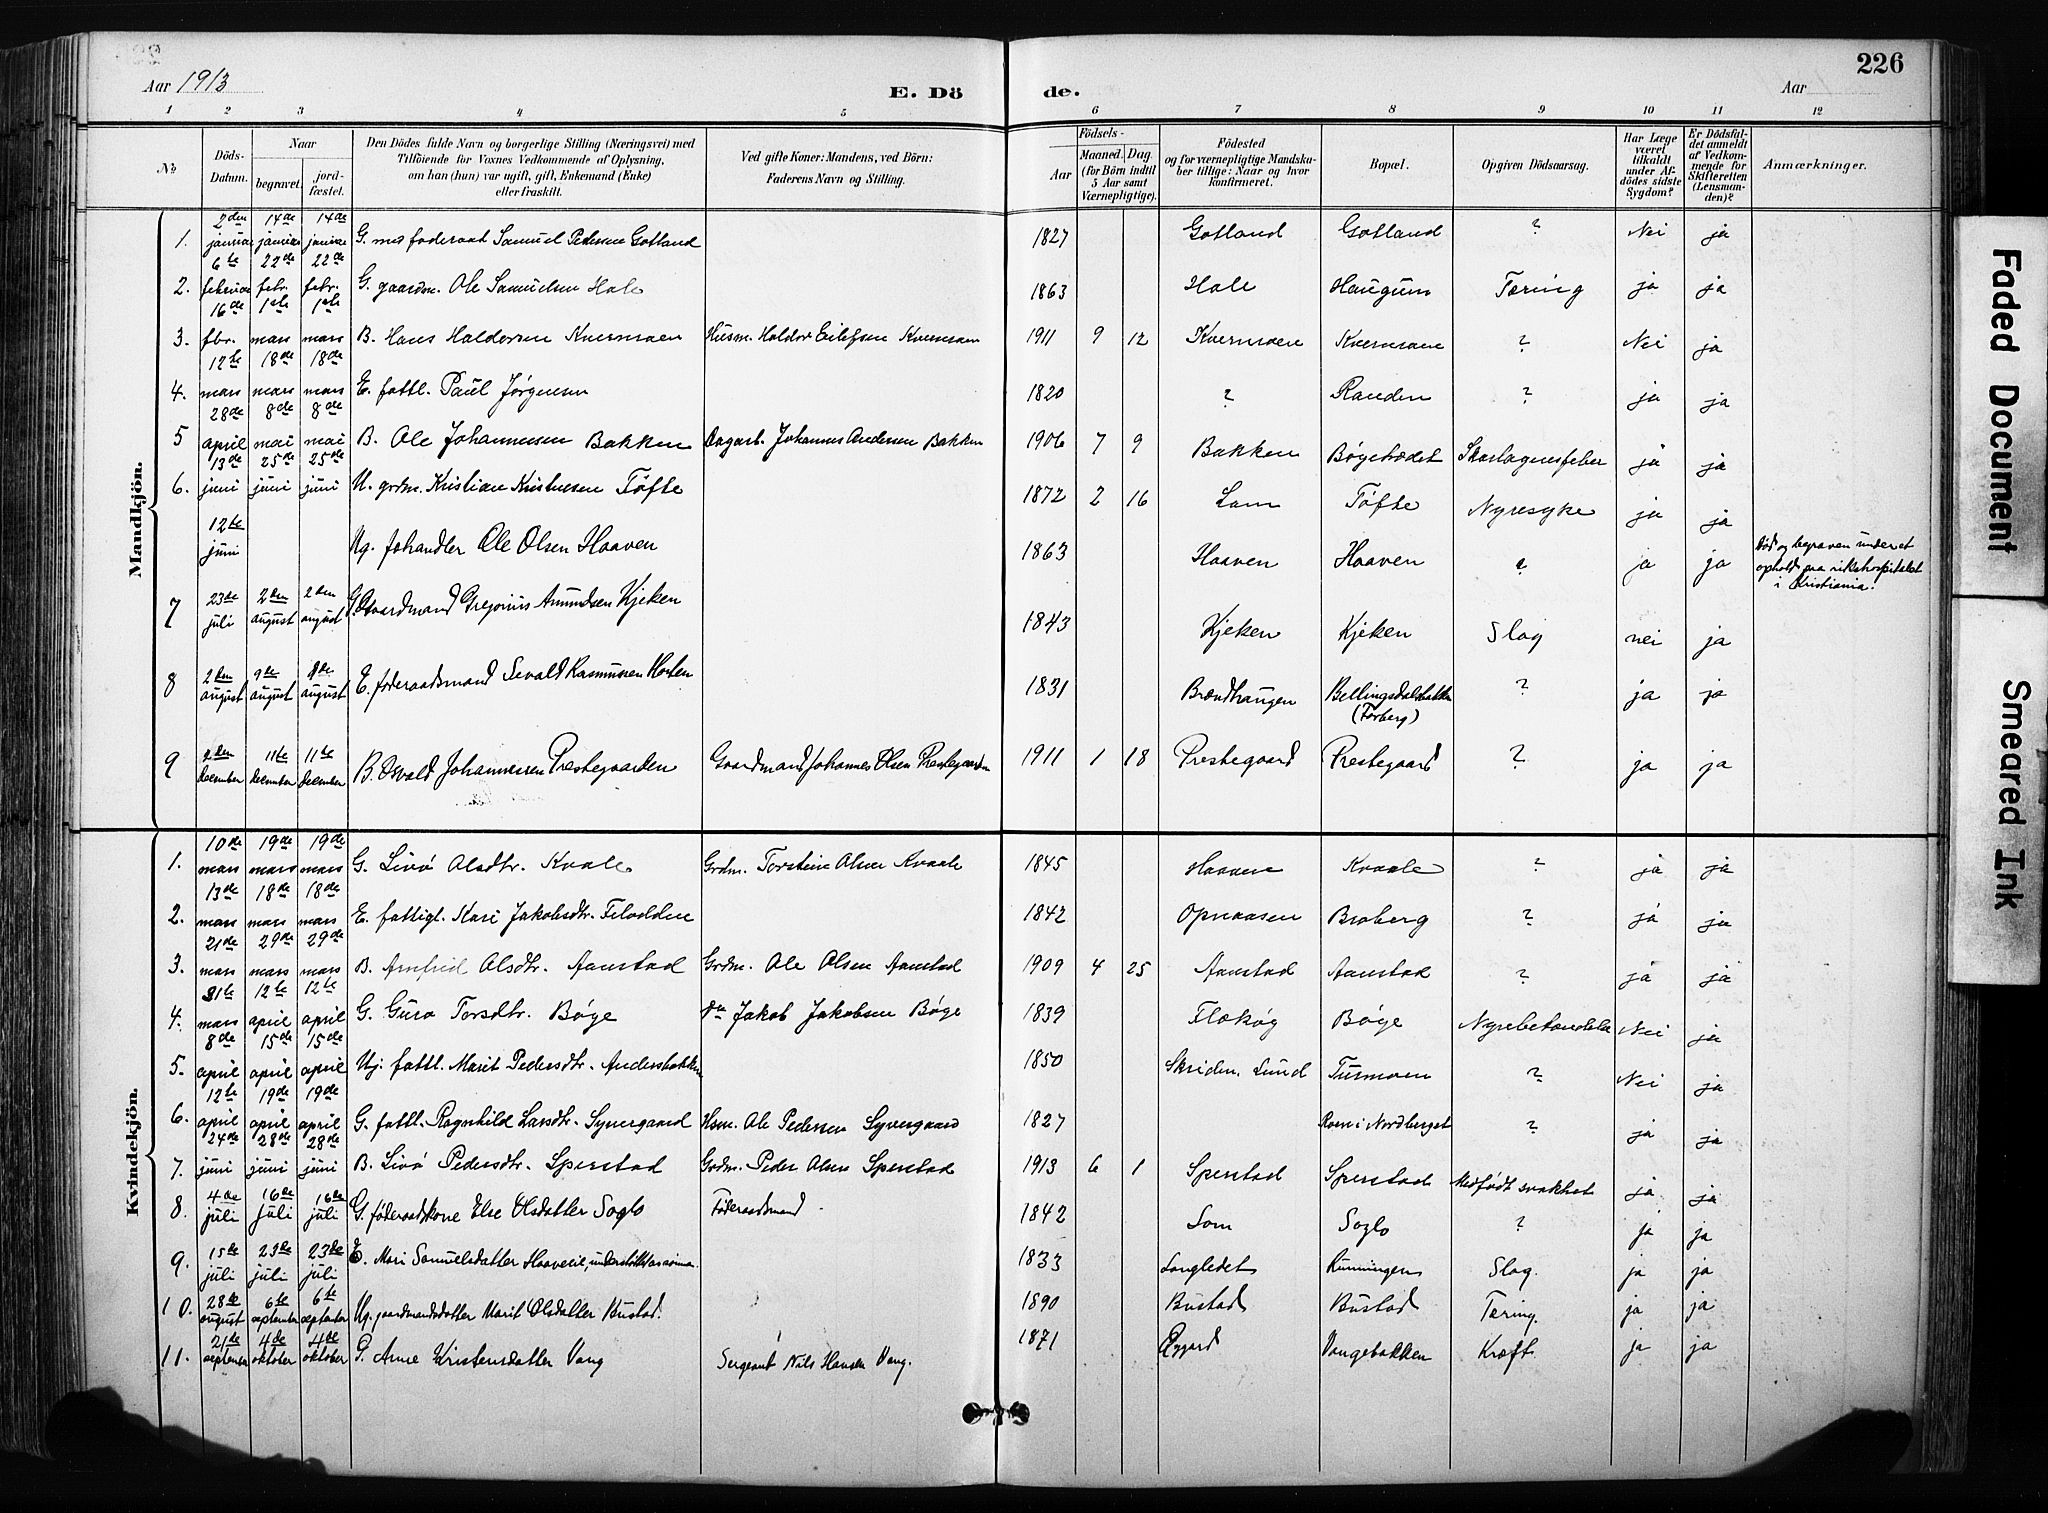 226
Aar 1913
E. Dö
de.
Aar
1 2 3 4 5 6 7 8 9 10 11 12
No
Döds-
Datum.
Naar
begravet.
jord-
fæstet.
Den Dödes fulde Navn og borgerlige Stilling (Næringsvei) med
Tilföiende for Voxnes Vedkommende af Oplysning,
om han (hun) var ugift, gift, Enkemand (Enke)
eller fraskilt.
Ved gifte Koner: Mandens, ved Börn:
Faderens Navn og Stilling.
Födsels-
Aar
Maaned. Dag.
(for Börn indtil
5 Aar samt
Værnepligtige).
Födested
og for værnepligtige Mandska-
ber tillige: Naar og hvor
konfirmeret.
Bopæl.
Opgiven Dödsaarsag.
Har Læge
været
tilkaldt
under Af-
dödes sidste
Sygdom?
Er Dödsfal-
det anmeldt
af Vedkom-
mende for
Skifteretten
(Lensman-
den)?
Anmærkninger.
Mandkjön.
1. 2den januar 14de januar 14de januar Samuel Pedersen Gotland 1827 Gotland Gotland ? Nei ja
2. 6te februar 22de febr. 22de febr. G. gaardm. Ole Samuelsen Hole 1863 Hole Haugum Tæring ja ja
3. 16de fbr. 1ste mars 1ste mars B. Hans Haldorsen Kvernmoen Husm. Haldor Eilefsen Kvernmoen 1911 9 12 Kvernmoen Kvernmoen ? Nei ja
4. 12te mars 18de mars 18de mars E. fattl. Paul Jørgensen 1820 ? Randen ? ja ja
5 28de april 8de mai 8de mai B. Ole Johannessen Bakken Dagarb. Johannes Andersen Bakken 1906 7 9 Bakken Skarlagensfeber ja ja
6. 13de juni 25de juni 25de juni U. grdm. Kristian Kristensen Tøfte 1872 2 16 Lom Tøfte Nyresyke ja ja
12te juni Ug. fohandler Ole Olsen Haaven 1863 Haaven Haaven ? ja ja Død og begraven under et
ophold paa rikshospitalet
i Kristiania.
7 23de juli 2den august 2den august G. Gaardmand Gregorius Amundsen Kjeken 1843 Kjeken Kjeken Slag nei ja
8 2den august 9de august august E. føderaadsmand Sevald Rasmussen 1831 Brændhaugen Bellingsdalsbakken ? ja ja
(Forberg)
9 2den december 11te december 11te december B. Osvald Johannessen Prestegaarden Gaardmand Johannes Olsen Prestegaarden 1911 1 18 Prestegaard Prestegaard ? ja ja
Kvindekjön.
1. 10de mars 19de mars 19de mars G. Livø Olsdtr. Kvale Grdm. Torstein Olsen Kvaale 1845 Haaven Kvaale ? ja ja
2. 13de mars 18de mars 18de mars E. fattigl. Kari Jakobsdtr. 1842 Opnaasen Broberg ? ja ja
3. 21de mars 29de mars 29de mars B. Arnfrid Olsdtr. Aanstad Grdm. Ole Olsen Aanstad 1909 4 25 Aanstad Aanstad ? ja ja
4. 31te mars 12te april 12te april G. Guro Torsdtr. Bøye Jakob Jakobsen Bøye 1839 Bøye Nei ja
5. 8de april 15de april 15de april Ug. fattl. Marit Pedersdtr. Andersbakken 1850 Skriden. Lund Turmoen ? Nei ja
6. 12te april 19de april 19de april G. fattl. Ragnhild Larsdtr. Syversgaard Hsm. Ole Pedersen Syversgaard 1827 i Nordberget ? ja ja
7. 24de juni 28de juni 28de juni B. Livø Pedersdtr. Sperstad Grdm. Peder Olsen Sperstad 1913 6 1 Sperstad Sperstad Medfødt svakhet ja ja
8. 4de juli 16de juli 16de juli G. føderaadskone Else Olsdatter Soglo Føderaadsmand 1842 Lom Soglo ? ja ja
9. 15de juli 23de juli 23de juli E. Mari Samuelsdatter 1833 Langledet Slag. ja ja
10. 28de august 6te september 6te september Ug. gaardmandsdatter Marit Olsdatter Bustad. 1890 Bustad Bustad Tæring. ja ja
11. 21de september 4de oktober 4de oktober G. Anne Kristensdatter Vang Sergeant Nils Hansen Vang. 1871 Øygard Vangebakken Kræft. ja ja
Faded Document
Smeared Ink